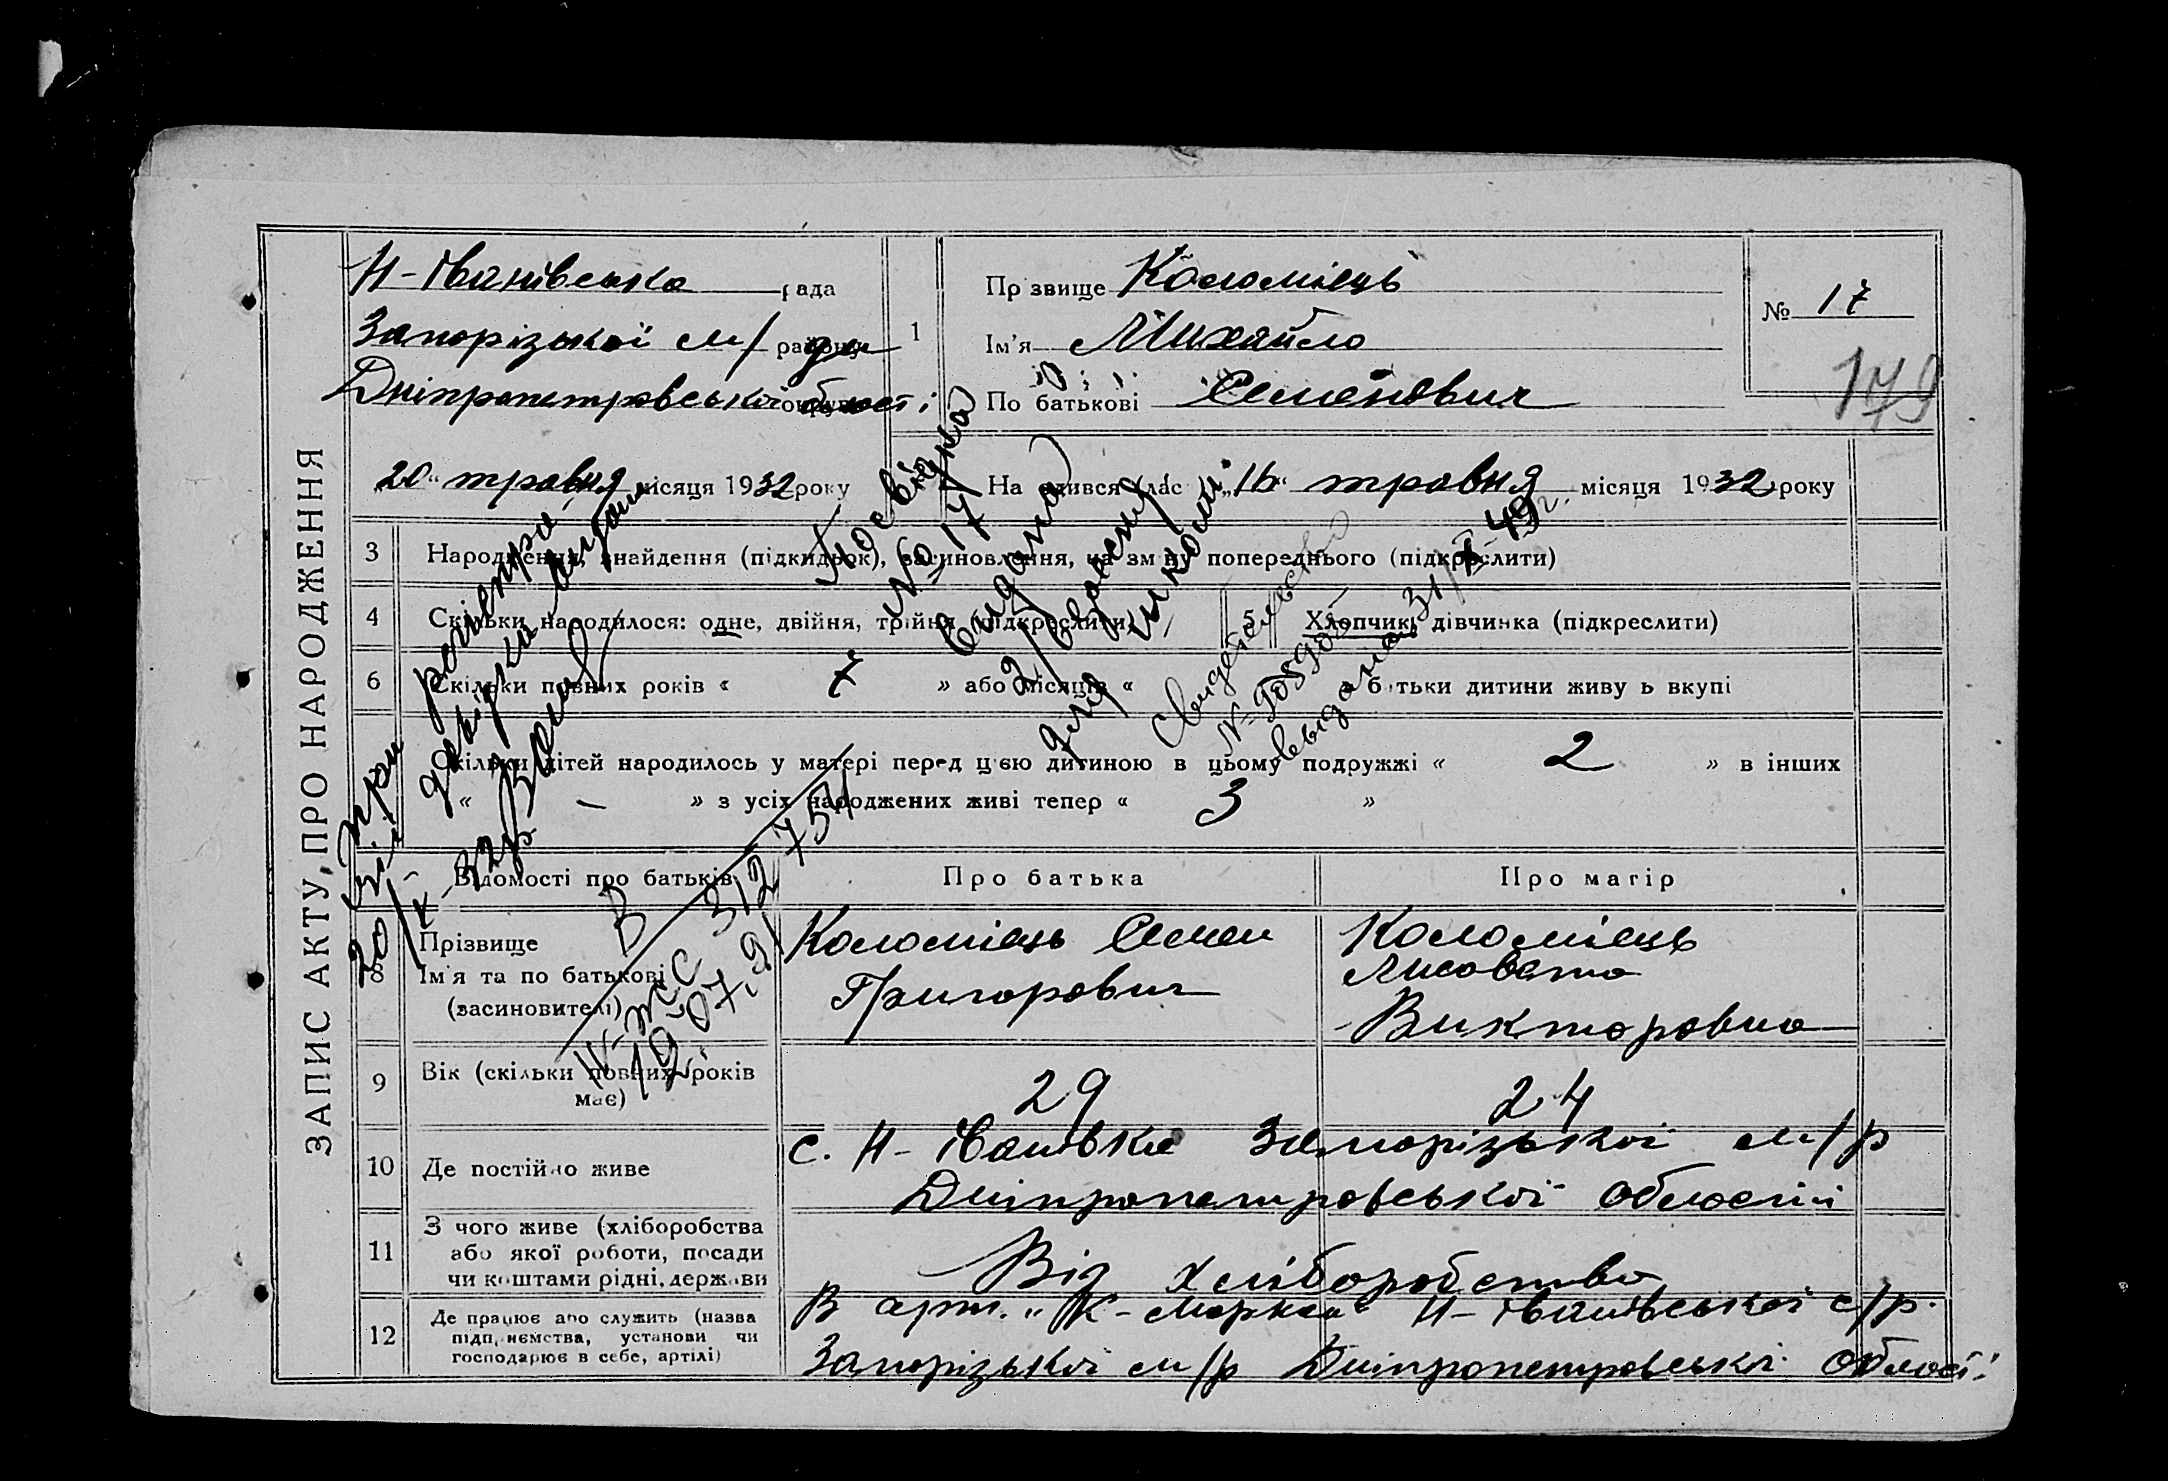 ЗАПИС АКТУ, ПРО НАРОДЖЕННЯ
Н-Іванівська рада
Запорізької м/
Дніпропетровської області
1
Прізвище Коломієць
Ім'я Михайло
По батькові Семенович
№ 17
179
"20" травня місяця 1932 року
Народився (лась) "16" травня місяця 1932 року
3 Народження, знайдення (підкидьок), засиновлення, на зміну попереднього (підкреслити)
4 Скільки народилося: одне, двійня, трійня (підкреслити)
5 Хлопчик, дівчинка (підкреслити)
6 Скільки повних років « 7 » або місяців « батьки дитини живуть вкупі
Скільки дітей народилось у матері перед цією дитиною в цьому подружжі « 2 » в інших
« — » з усіх народжених живі тепер « 3 »
Посвідка
№ 17
видана
2/
для школи
Свидетельство
выдано 31/X-49г.
20/X-32р
В 312 757
IV-ЖС
19.07.91
Відомості про батьків
Про батька
Про матір
8 Прізвище
Ім'я та по батькові
(засиновителі)
Коломієць Семен
Григорович
Коломієць
Лисавета
Викторовна
9 Вік (скільки повних років
має)
29
24
10 Де постійно живе
с. Н-Іванівка Запорізької м/р
Дніпропетровської області
11 З чого живе (хліборобства
або якої роботи, посади
чи коштами рідні, держави
Від хліборобства
12 Де працює або служить (назва
підприємства, установи чи
господарює в себе, артілі)
В арт. "К-Маркса" Н-Іванівської с/р.
Запорізької м/р Дніпропетровської області